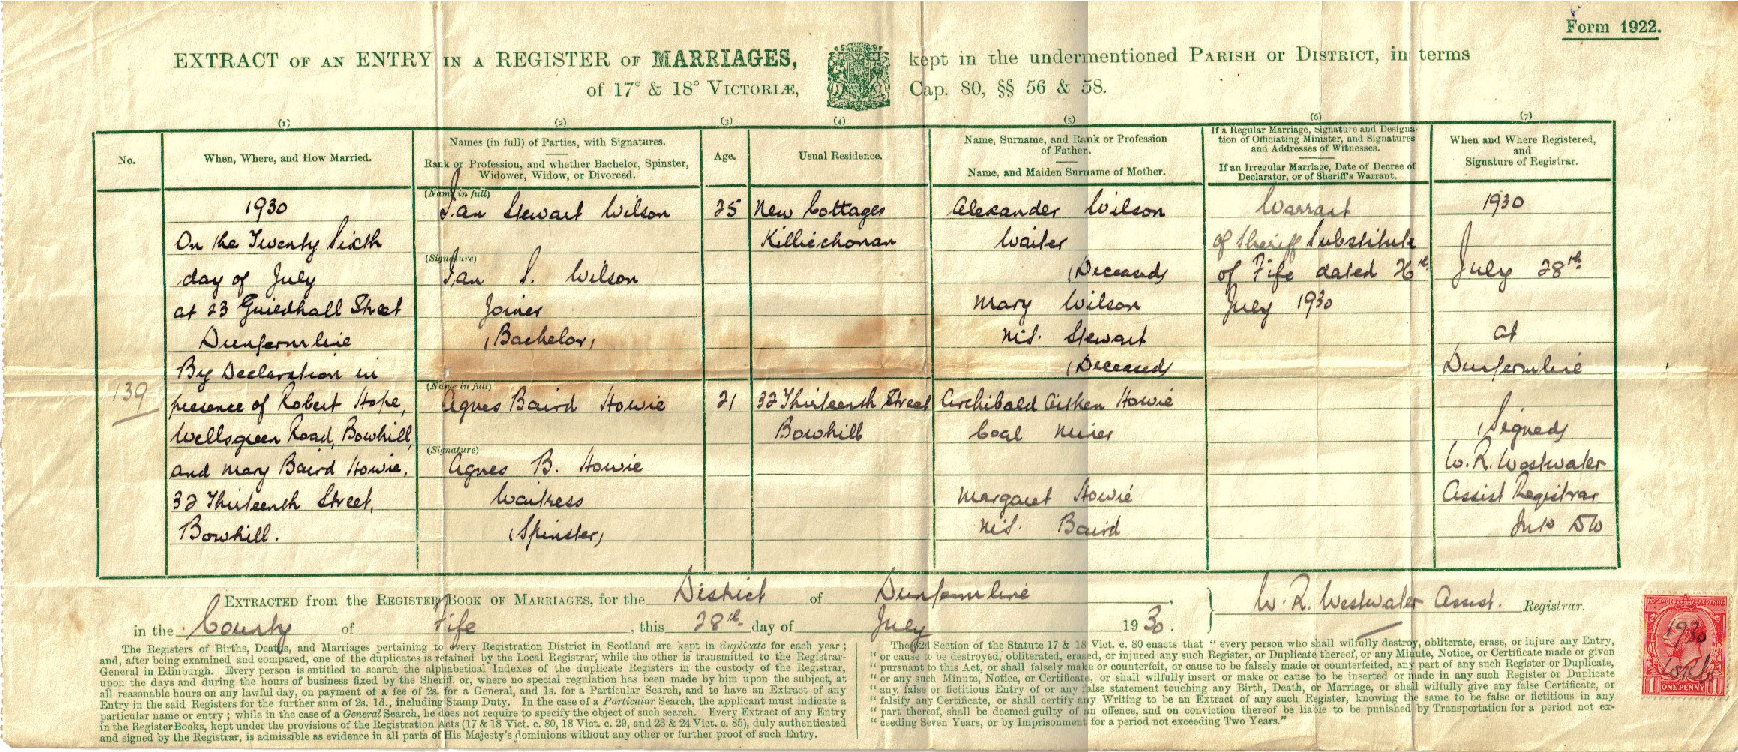 Form 1922.
EXTRACT OF AN ENTRY IN A REGISTER OF MARRIAGES, kept in the undermentioned PARISH OR DISTRICT, in terms
of 17° & 18° VICTORIÆ, Cap. 80, §§ 56 & 58.
(1) (2) (3) (4) (5) (6) (7)
No.
When, Where, and How Married.
Names (in full) of Parties, with Signatures.
Rank or Profession, and whether Bachelor, Spinster,
Widower, Widow, or Divorced.
Age.
Usual Residence.
Name, Surname, and Rank or Profession
of Father.
Name, and Maiden Surname of Mother.
If a Regular Marriage, Signature and Designa-
tion of Officiating Minister, and Signatures
and Addresses of Witnesses.
If an Irregular Marriage, Date of Decree of
Declarator, or of Sheriff's Warrant.
When and Where Registered,
and
Signature of Registrar.
139
1930
On the Twenty Sixth
day of July
at 23 Guildhall Street
Dunfermline
By Declaration in
presence of Robert Hope,
Wellsgreen Road, Bowhill,
and Mary Baird Howie,
32 Thirteenth Street,
Bowhill.
(Name in full)
Ian Stewart Wilson
(Signature)
Ian S. Wilson
Joiner
(Bachelor)
25
New Cottages
Killiechonan
Alexander Wilson
Waiter
(Deceased)
Mary Wilson
M.S. Stewart
(Deceased)
(Name in full)
Agnes Baird Howie
(Signature)
Agnes B. Howie
Waitress
(Spinster)
21
32 Thirteenth Street
Bowhill
Archibald Aitken Howie
Coal Miner
Margaret Howie
M.S. Baird
Warrant
of Sheriff Substitute
of Fife dated 26th
July 1930
1930
July 28th
at
Dunfermline
(Signed)
W. R. Westwater
Assist Registrar
EXTRACTED from the REGISTER BOOK OF MARRIAGES, for the District of Dunfermline W. R. Westwater Assist. Registrar.
in the County of Fife, this 28th day of July 1930.
The Registers of Births, Deaths, and Marriages pertaining to every Registration District in Scotland are kept in duplicate for each year;
and, after being examined and compared, one of the duplicates is retained by the Local Registrar, while the other is transmitted to the Registrar-
General in Edinburgh. Every person is entitled to search the alphabetical Indexes of the duplicate Registers in the custody of the Registrar,
upon the days and during the hours of business fixed by the Sheriff, or, where no special regulation has been made by him upon the subject, at
all reasonable hours on any lawful day, on payment of a fee of 2s. for a General, and 1s. for a Particular Search, and to have an Extract of any
Entry in the said Registers for the further sum of 2s. 1d., including Stamp Duty. In the case of a Particular Search, the applicant must indicate a
particular name or entry; while in the case of a General Search, he does not require to specify the object of such search. Every Extract of any Entry
in the Register Books, kept under the provisions of the Registration Acts (17 & 18 Vict. c. 80, 18 Vict. c. 29, and 23 & 24 Vict. c. 85), duly authenticated
and signed by the Registrar, is admissible as evidence in all parts of His Majesty's dominions without any other or further proof of such Entry.
The Section of the Statute 17 & 18 Vict. c. 80 enacts that "every person who shall wilfully destroy, obliterate, erase, or injure any Entry,
"or cause to be destroyed, obliterated, erased, or injured any such Register, or Duplicate thereof, or any Minute, Notice, or Certificate made or given
"pursuant to this Act, or shall falsely make or counterfeit, or cause to be falsely made or counterfeited, any part of any such Register or Duplicate,
"or any such Minute, Notice, or Certificate, or shall wilfully insert or make or cause to be inserted or made in any such Register or Duplicate
"any false or fictitious Entry of or any false statement touching any Birth, Death, or Marriage, or shall wilfully give any false Certificate, or
"falsify any Certificate, or shall certify any Writing to be an Extract of any such Register, knowing the same to be false or fictitious in any
"part thereof, shall be deemed guilty of an offence, and on conviction thereof be liable to be punished by Transportation for a period not ex-
"ceeding Seven Years, or by Imprisonment for a period not exceeding Two Years."
1930
ONE PENNY